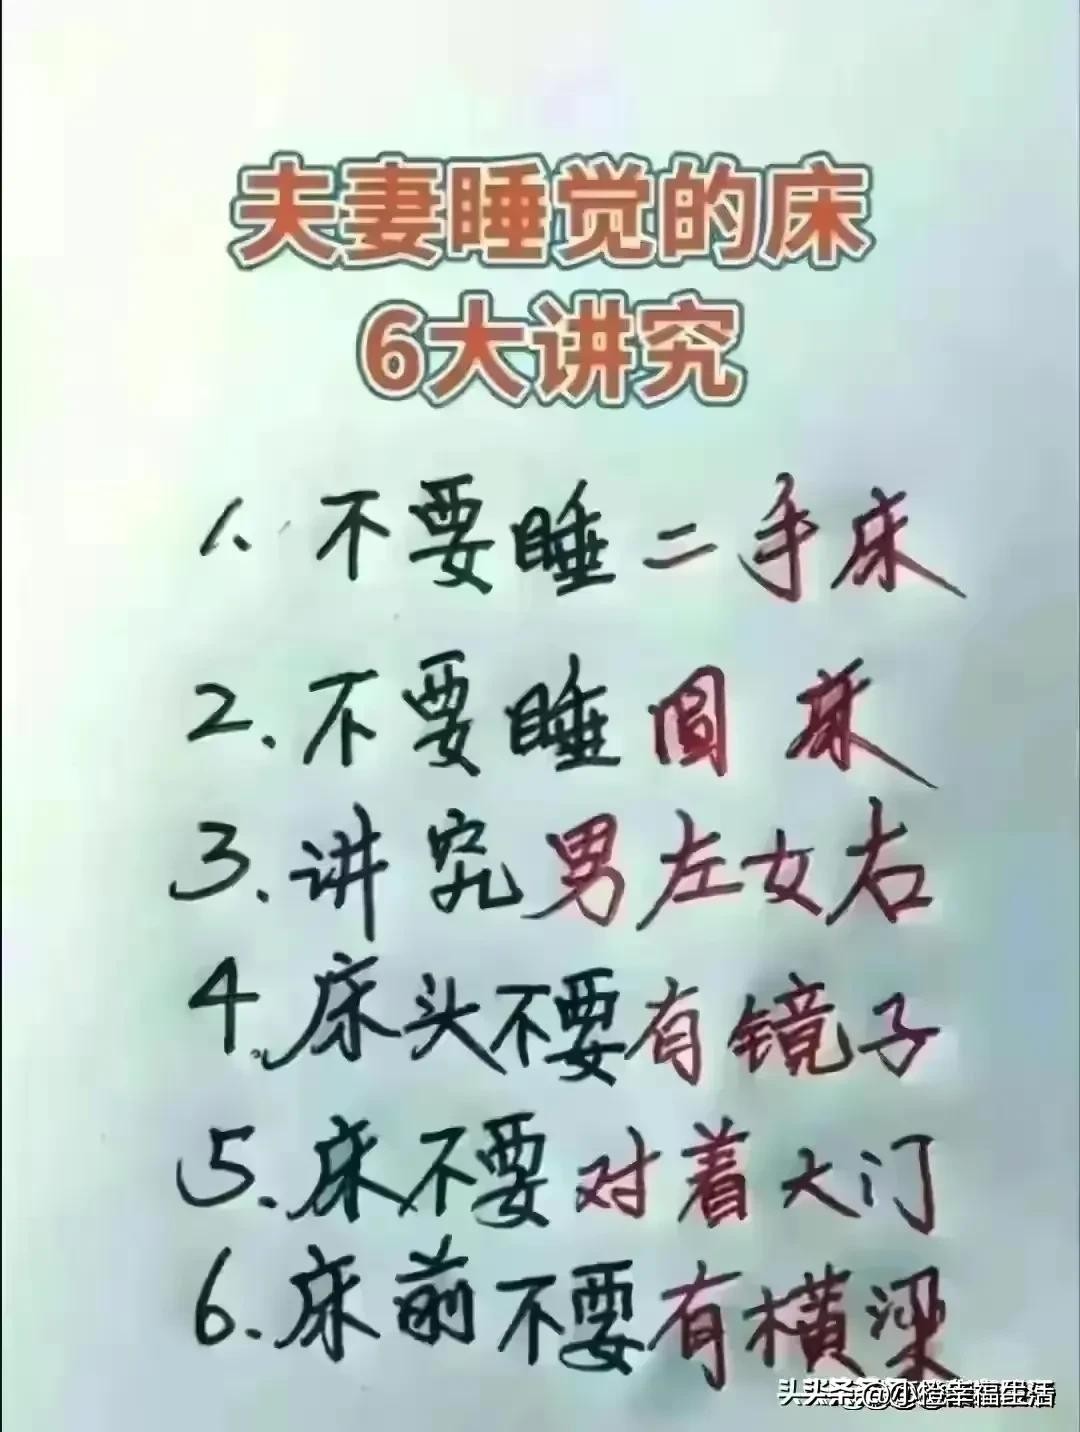 夫妻睡觉的床
6大讲究
1. 不要睡二手床
2. 不要睡圆床
3. 讲究男左女右
4. 床头不要有镜子
5. 床不要对着大门
6. 床前不要有横梁
头条 @小橙幸福生活